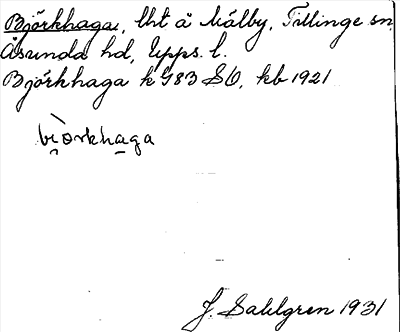 Björkhaga, lht å Målby, Tillinge sn,
Åsunda hd, Upps. l.
Björkhaga k G83 SO, kb 1921
bi̯òrkhaga
J. Sahlgren 1931